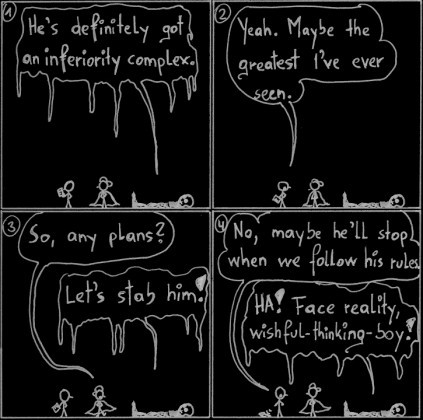 1
He's definitely got
an inferiority complex.
2
Yeah. Maybe the
greatest I've ever
seen.
3
So, any plans?
Let's stab him!
4
No, maybe he'll stop
when we follow his rules.
HA! Face reality,
wishful-thinking-boy!